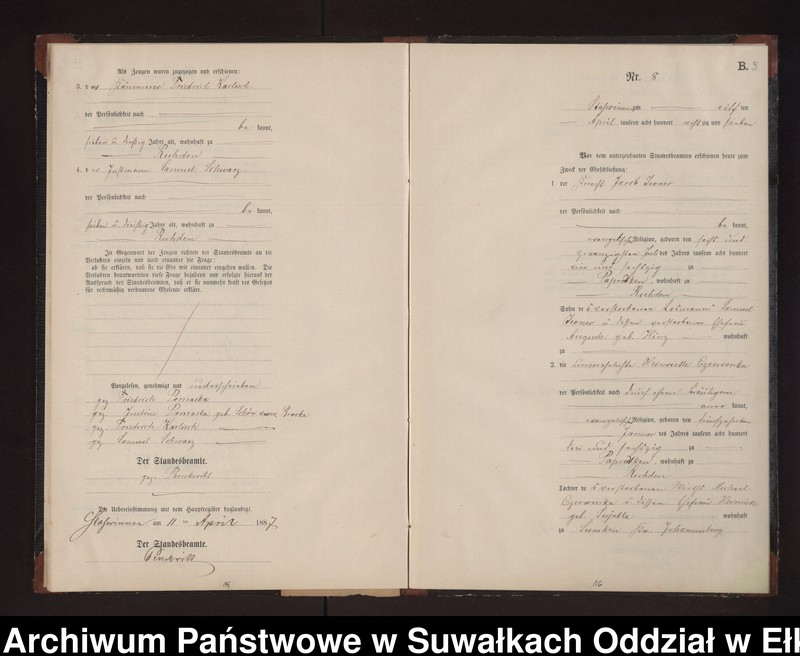 Als Zeugen waren zugezogen und erschienen:
3. der Kämmerer Friedrich Karlisch
der Persönlichkeit nach
be kannt,
sieben u dreißig Jahre alt, wohnhaft zu
Ruhden
4. der Instmann Samuel Schwarz
der Persönlichkeit nach
be kannt,
sieben u dreißig Jahre alt, wohnhaft zu
Ruhden
In Gegenwart der Zeugen richtete der Standesbeamte an die
Verlobten einzeln und nach einander die Frage:
ob sie erklären, daß sie die Ehe mit einander eingehen wollen. Die
Verlobten beantworteten diese Frage bejahend und erfolgte hierauf der
Ausspruch des Standesbeamten, daß er sie nunmehr kraft des Gesetzes
für rechtmäßig verbundene Eheleute erkläre.
Vorgelesen, genehmigt und unterschrieben
gez Friedrich
gez geb.
gez Friedrich Karlisch
gez Samuel Schwarz
Der Standesbeamte.
gez.
Die Uebereinstimmung mit dem Hauptregister beglaubigt.
am 11 ten April 1887
Der Standesbeamte.
15
B. 9
Nr. 8
am elf ten
April tausend acht hundert achtzig und sieben
Vor dem unterzeichneten Standesbeamten erschienen heute zum
Zweck der Eheschließung:
1. der Knecht Jacob
der Persönlichkeit nach
be kannt,
evangelischer Religion, geboren den sechs und
zwanzigsten Juli des Jahres tausend acht hundert
vier und sechszig zu
Paprodtken, wohnhaft zu
Ruhden
Sohn des verstorbenen Losmanns Samuel
u dessen verstorbener Ehefrau
Auguste geb. Hinz wohnhaft
zu
2. die unverehelichte Henriette Czerwonka
der Persönlichkeit nach durch ihren Bräutigam
aner kannt,
evangelischer Religion, geboren den
Januar des Jahres tausend acht hundert
drei und sechszig zu
Paprodtken, wohnhaft zu
Ruhden
Tochter des verstorbenen Wirths Michael
Czerwonka u dessen Ehefrau
geb. wohnhaft
zu Kr. Johannisburg
16
Archiwum Państwowe w Suwałkach Oddział w Ełk